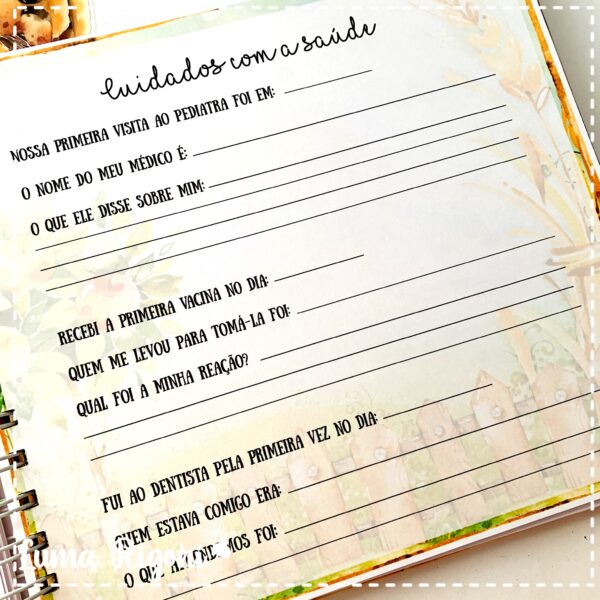 Cuidados com a saúde
NOSSA PRIMEIRA VISITA AO PEDIATRA FOI EM:
O NOME DO MEU MÉDICO É:
O QUE ELE DISSE SOBRE MIM:
RECEBI A PRIMEIRA VACINA NO DIA:
QUEM ME LEVOU PARA TOMÁ-LA FOI:
QUAL FOI A MINHA REAÇÃO?
FUI AO DENTISTA PELA PRIMEIRA VEZ NO DIA:
QUEM ESTAVA COMIGO ERA:
O QUE FOI:
Luma